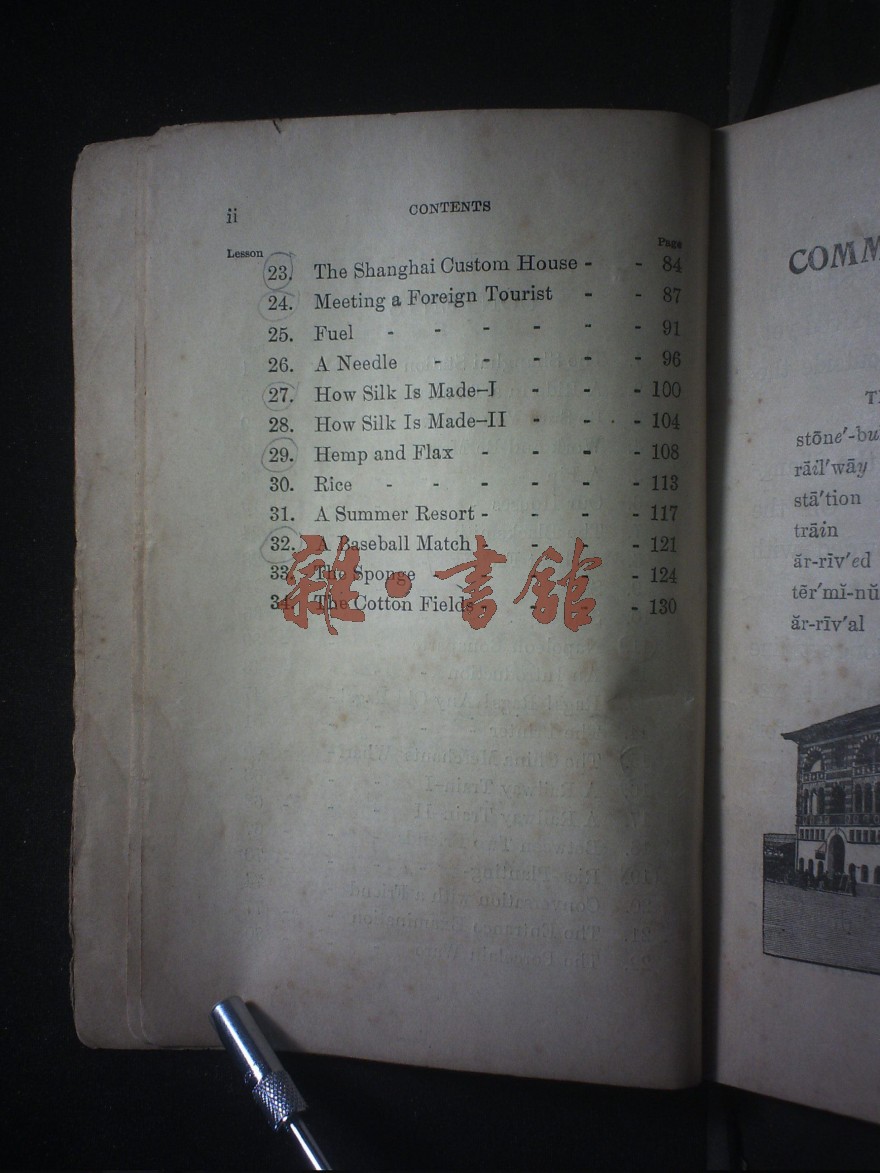 ii CONTENTS
Lesson Page
23. The Shanghai Custom House - - 84
24. Meeting a Foreign Tourist - - 87
25. Fuel - - - - - - 91
26. A Needle - - - - - 96
27. How Silk Is Made–I - - - 100
28. How Silk Is Made–II - - - 104
29. Hemp and Flax - - - - 108
30. Rice - - - - - - 113
31. A Summer Resort - - - - 117
32. A Baseball Match - - - - 121
33. The Sponge - - - - - 124
34. The Cotton Fields - - - - 130
雜·書館
COMM
stōne′-bu
rāil′wāy
stā′tion
trāin
ăr-rīv′ed
tẽr′mĭ-nŭ
ăr-rīv′al